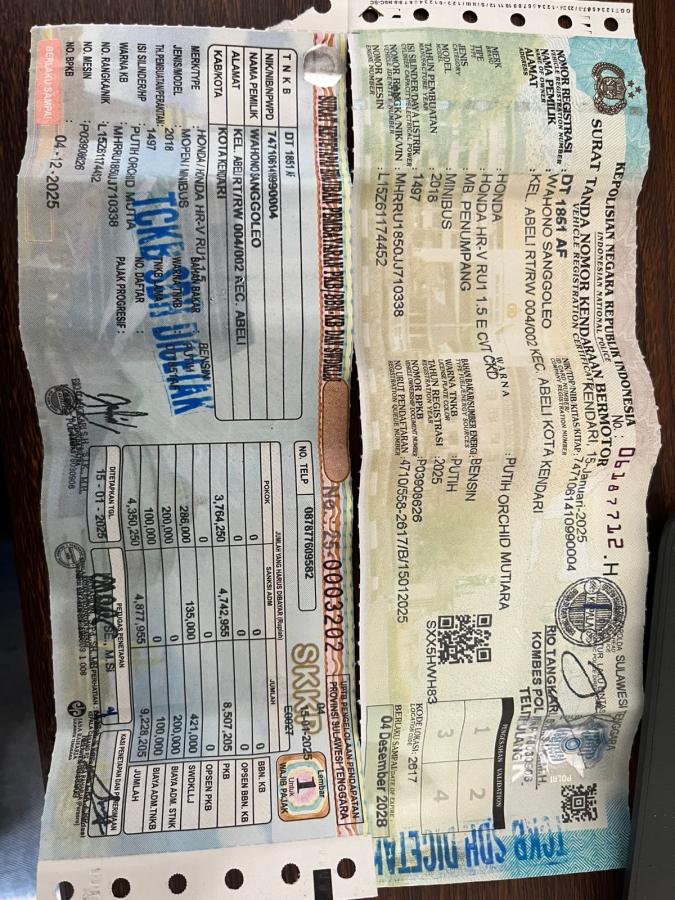 KEPOLISIAN NEGARA REPUBLIK INDONESIA
INDONESIAN NATIONAL POLICE
SURAT TANDA NOMOR KENDARAAN BERMOTOR
VEHICLE REGISTRATION CERTIFICATE
No : 06187712 .H
KENDARI, 15 Januari 2025
NOMOR REGISTRASI : DT 1851 AF
VEHICLE REGISTRATION NUMBER
NIK/TDP/NIB/KITAS/KITAP: 7471061410990004
NAMA PEMILIK : WAHONO SANGGOLEO
NAME OF OWNER
ALAMAT : KEL. ABELI RT/RW 004/002 KEC. ABELI KOTA KENDARI
ADDRESS
MERK : HONDA
TYPE : HONDA HR-V RU1 1.5 E CVT CKD
JENIS : MB. PENUMPANG
MODEL : MINIBUS
TAHUN PEMBUATAN : 2018
ISI SILINDER/DAYA LISTRIK : 1497
NOMOR RANGKA/NIK/VIN : MHRRU1850JJ710338
NOMOR MESIN : L15Z61174452
WARNA : PUTIH ORCHID MUTIARA
BAHAN BAKAR/SUMBER ENERGI : BENSIN
WARNA TNKB : PUTIH
TAHUN REGISTRASI : 2025
NOMOR BPKB : P03908626
NO URUT PENDAFTARAN : 4710/558-2617/B/15012025
SXX5HWH83
RIO TANGKARI
KOMBES POL
PENGESAHAN VALIDATION
1 2
3 4
KODE LOKASI : 2617
BERLAKU SAMPAI
04 Desember 2028
TCKB SDH DICETAK
No. 25-0003202
UPTB PENGELOLAAN PENDAPATAN
PROVINSI SULAWESI TENGGARA
Lembar
1
Untuk
WAJIB PAJAK
SKKP
TNKB DT 1851 AF
NIK/NIB/NPWPD 7471061410990004
NAMA PEMILIK WAHONO SANGGOLEO
ALAMAT KEL. ABELI RT/RW 004/002 KEC. ABELI
KAB/KOTA KOTA KENDARI
MERK/TYPE : HONDA / HONDA HR-V RU1 1.5
JENIS/MODEL : MOPEN / MINIBUS
TH.PEMBUATAN/PERAKITAN : 2018
ISI SILINDER/HP : 1497
WARNA KB : PUTIH ORCHID MUTIA
NO. RANGKA/NIK : MHRRU1850JJ710338
NO. MESIN : L15Z61174452
NO. BPKB : P03908626
BAHAN BAKAR : BENSIN
WARNA TNKB : PUTIH
TNKB LAMA :
NO. DAFTAR :
PAJAK PROGRESIF :
TCKB SDH DICETAK
BERLAKU SAMPAI
04 -12 -2025
NO. TELP 087877609582
15-01-2025
JUMLAH YANG HARUS DIBAYAR (Rupiah)
POKOK SANKSI ADM JUMLAH
0 0 0 BBN. KB
0 0 0 OPSEN BBN. KB
3,764,250 4,742,955 8,507,205 PKB
0 0 0 OPSEN PKB
286,000 135,000 421,000 SWDKLLJ
200,000 0 200,000 BIAYA ADM. STNK
100,000 0 100,000 BIAYA ADM.TNKB
4,350,250 4,877,955 9,228,205 JUMLAH
DITETAPKAN TGL.
15 - 01 - 2025
PETUGAS PENETAPAN